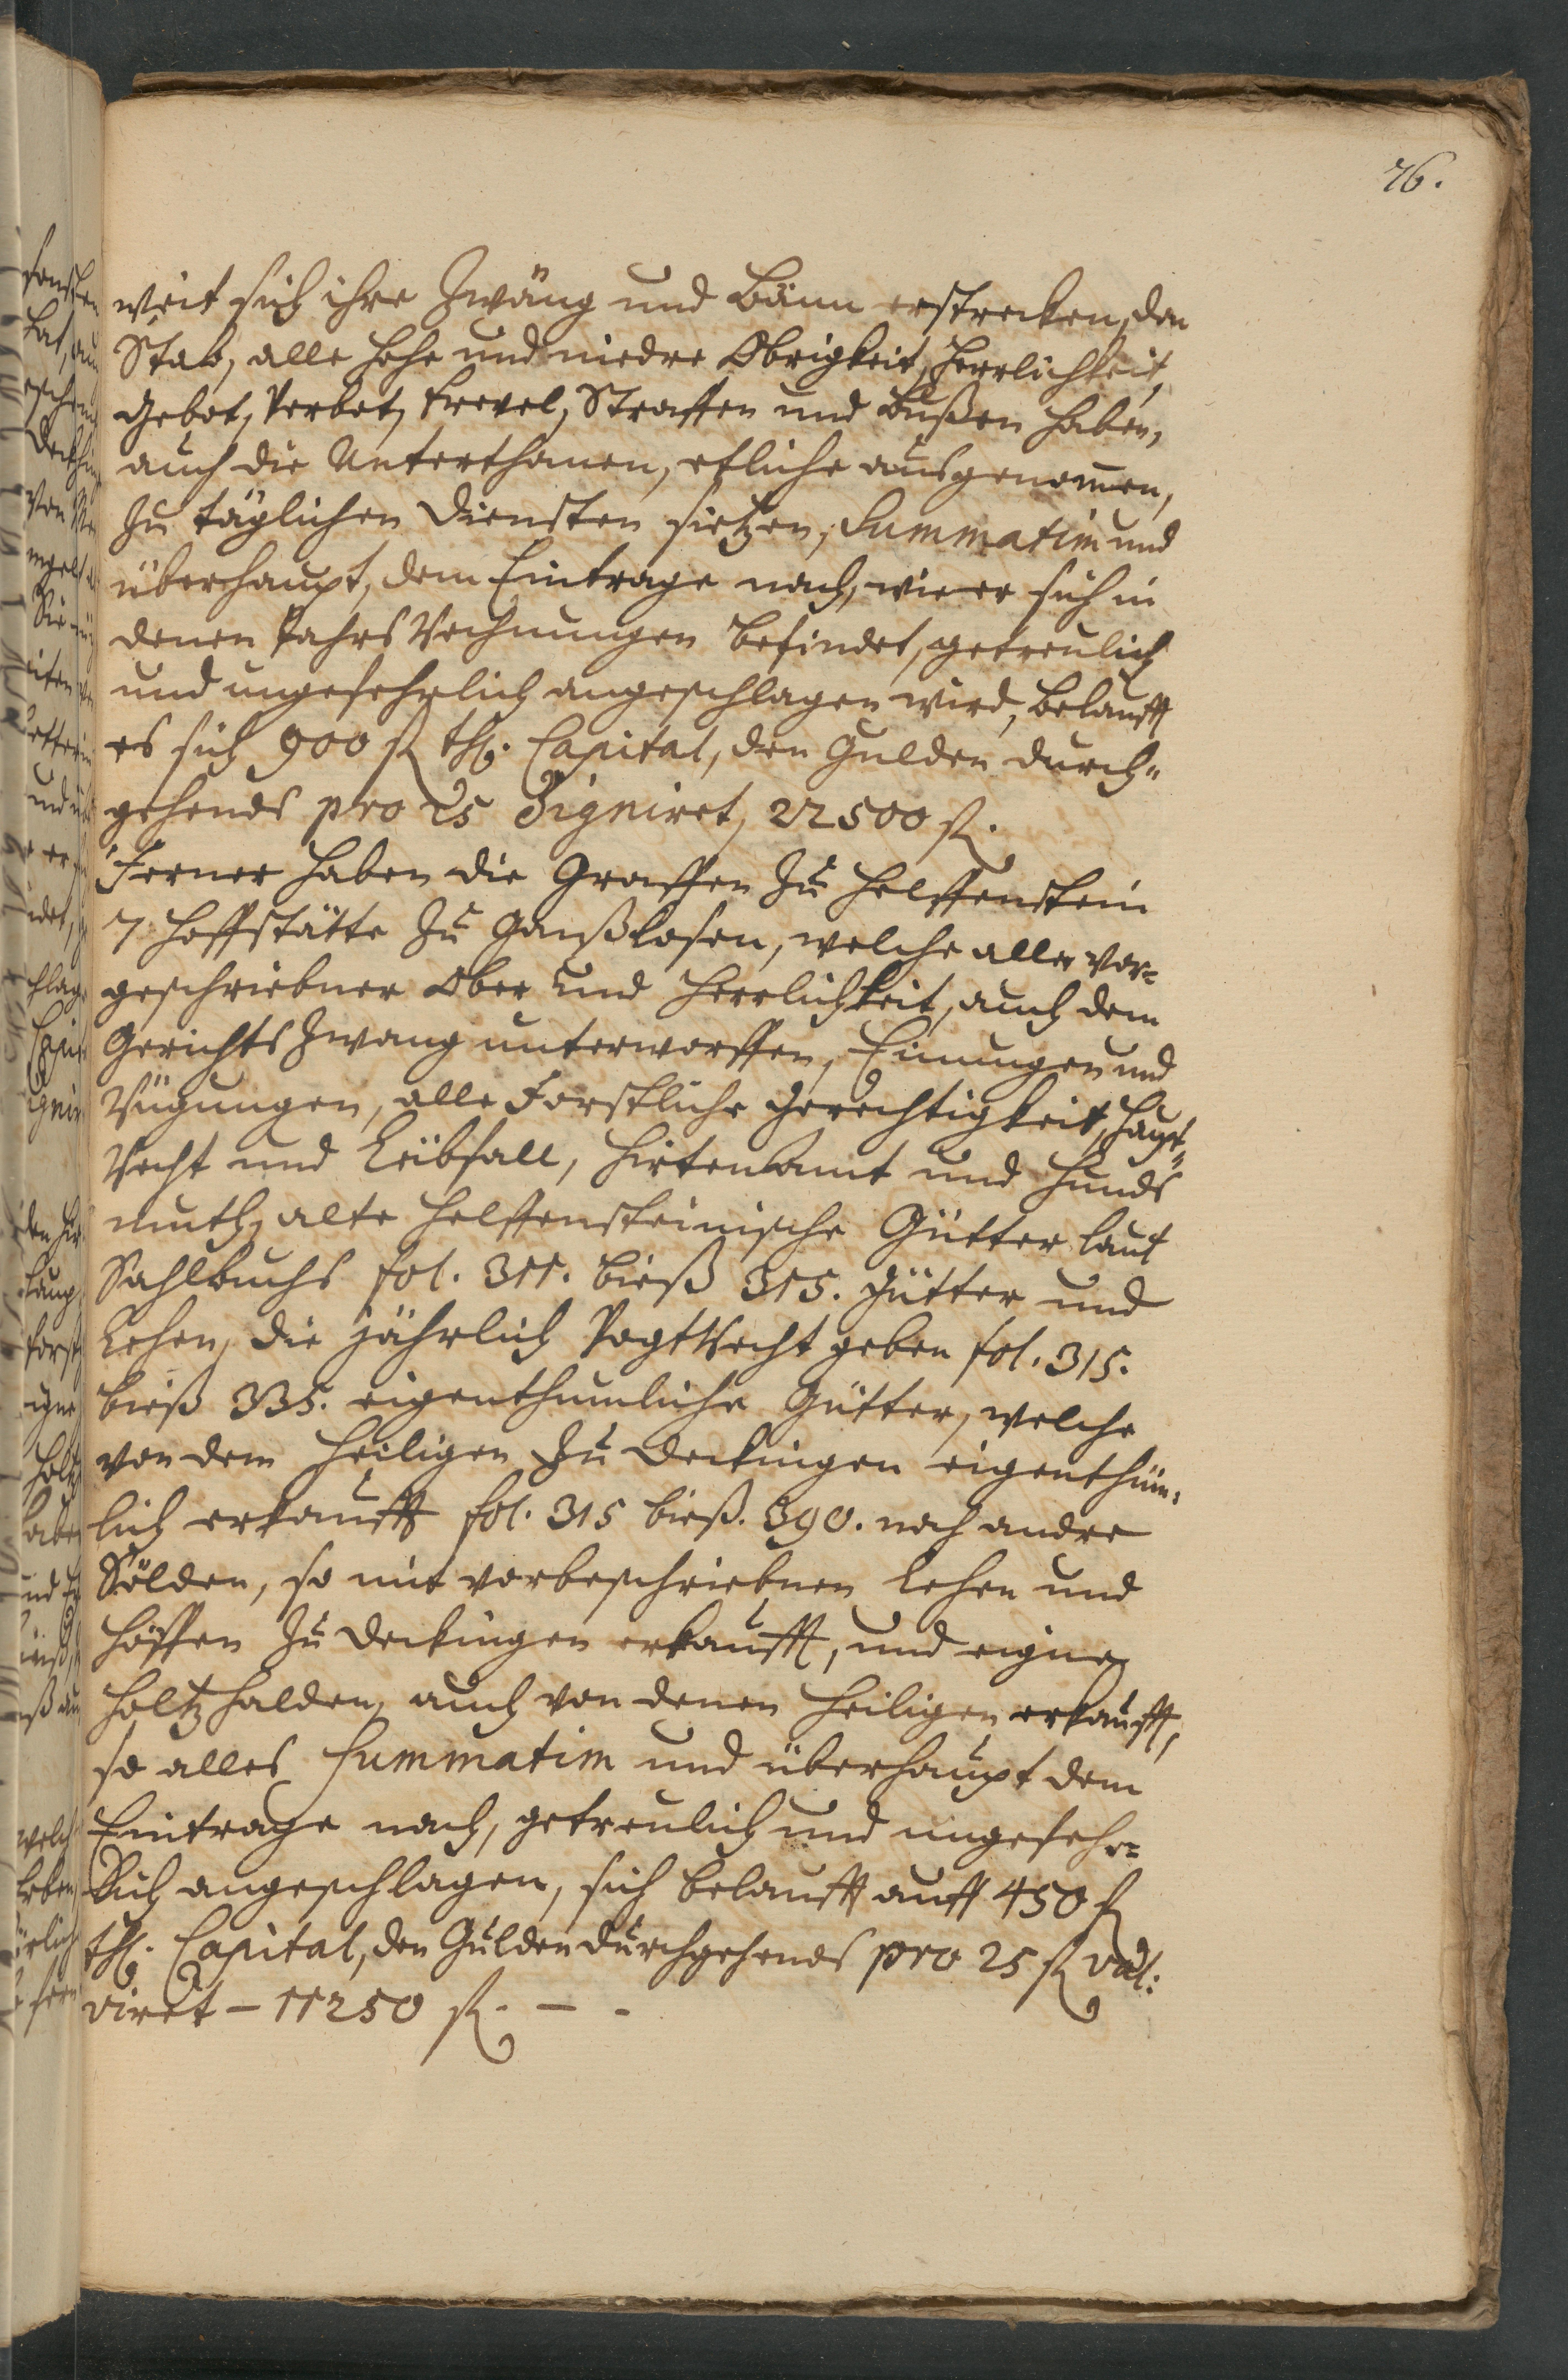 76.
weit sich ihre Zwäng und Bänn erstrecken, den
Stab, alle hohe und niedre Obrigkeit, Herrlichkeit,
Gebot, Verbot, Frevel, Straffen und Bußen haben,
auch die Unterthanen, etliche ausgenom̄en,
zu täglichen Diensten sitzen, Summatim und
überhaupt, dem Eintrage nach, wie er sich in
denen Jahrs Rechnungen befindet, getreulich
und ungefehrlich angeschlagen wird, belaufft
es sich 900 fl Capital, den Gulden durch-
gehends pro 25 signiret, 22500 fl.
Ferner haben die Graffen zu Helffenstein
7 Hoffstätte zu Ganßlosen, welche aller vor-
geschriebner Ober und Herrlichkeit, auch dem
Gerichts Zwang unterworffen, Einungen und
Rügungen, alle Forstliche Gerechtigkeit, Haupt-
Recht und Leibfall, Hirten Amt und Hunds
muth, alte Helffensteinische Gütter laut
Sahlbuchs fol. 311. bieß 315. Gütter und
Lehen, die jährlich VogtRecht geben fol. 315.
bieß 335. eigenthumliche Gütter, welche
von dem Heiligen zu Deckingen eigenthüm-
lich erkaufft fol. 315 bieß. 390. noch andre
Sölden, so mit vorbeschriebnen Lehen und
Höffen zu Deckingen erkaufft, und eigne
Holtz halden, auch von denen Heiligen erkaufft,
so alles Summatim und überhaupt dem
Eintrage nach, getreulich und ungefehr-
lich angeschlagen, sich belaufft auff 450 fl
Capital, den Gulden durchgehends pro 25 fl val:
viret - 11250 fl. - -